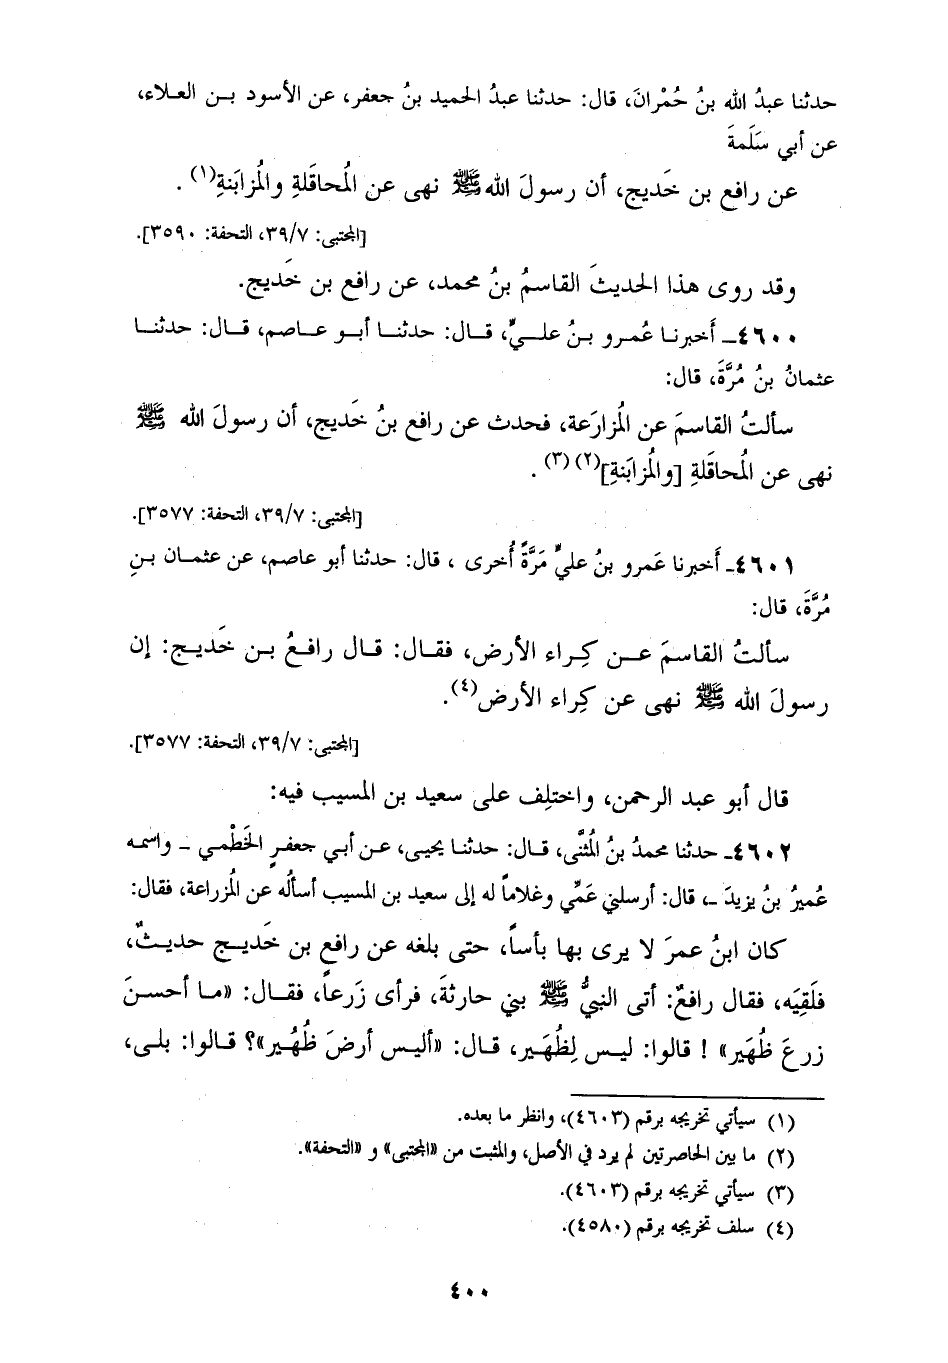 حدثنا عبدُ الله بنُ حُمْرانَ، قال: حدثنا عبدُ الحميد بنُ جعفر، عن الأسود بـن العـلاء،
عن أبي سَلَمةَ
عن رافع بن خَديج، أن رسولَ الله ﷺ نهى عن المُحاقَلةِ والمُزابَنةِ(١).
[المجتبى: ٣٩/٧، التحفة: ٣٥٩٠].
وقد روى هذا الحديثَ القاسمُ بنُ محمد، عن رافع بن خَديج.
٤٦٠٠ـ أَخبرنـا عُمـرو بـنُ علـيٍّ، قـال: حدثنـا أبـو عـاصم، قـال: حدثنـا
عثمانُ بنُ مُرَّةَ، قال:
سألتُ القاسمَ عن المُزارَعة، فحدث عن رافع بنُ خَديج، أن رسولَ الله ﷺ
نهى عن المُحاقَلةِ [والمُزابَنةِ](٢)(٣).
[المجتبى: ٣٩/٧، التحفة: ٣٥٧٧].
٤٦٠١ـ أَخبرنا عَمرو بنُ عليٍّ مَرَّةً أُخرى ، قال: حدثنا أبو عاصم، عن عثمـان بـنِ
مُرَّةَ، قال:
سألتُ القاسمَ عـن كِـراء الأرض، فقـال: قـال رافـعُ بـن خَديـج: إن
رسولَ الله ﷺ نهى عن كِراء الأرض(٤).
[المجتبى: ٣٩/٧، التحفة: ٣٥٧٧].
قال أبو عبد الرحمن، واختلِف على سعيد بن المسيب فيه:
٤٦٠٢ـ حدثنا محمدُ بنُ المُثنَّى، قـال: حدثنـا يحيى، عـن أبـي جعفـرٍ الخَطْمـي ـ واسمـه
عُميرُ بنُ يزيدَ ـ، قال: أرسلني عَمِّي وغلاماً له إلى سعيد بن المسيب أسألُه عن المُزراعة، فقال:
كان ابنُ عمرَ لا يرى بها بأساً، حتى بلغه عن رافع بن خَديـج حديـثٌ،
فلَقِيَه، فقال رافعٌ: أتى النبيُّ ﷺ بني حارثةَ، فرأى زَرعاً، فقـال: «مـا أحسـنَ
زرعَ ظُهَير» ! قالوا: ليـس لِظُهَـير، قـال: «أليـس أرضَ ظُهُـير»؟ قـالوا: بلـى،
(١) سيأتي تخريجه برقم (٤٦٠٣)، وانظر ما بعده.
(٢) ما بين الحاصرتين لم يرد في الأصل، والمثبت من «المجتبى» و «التحفة».
(٣) سيأتي تخريجه برقم (٤٦٠٣).
(٤) سلف تخريجه برقم (٤٥٨٠).
٤٠٠